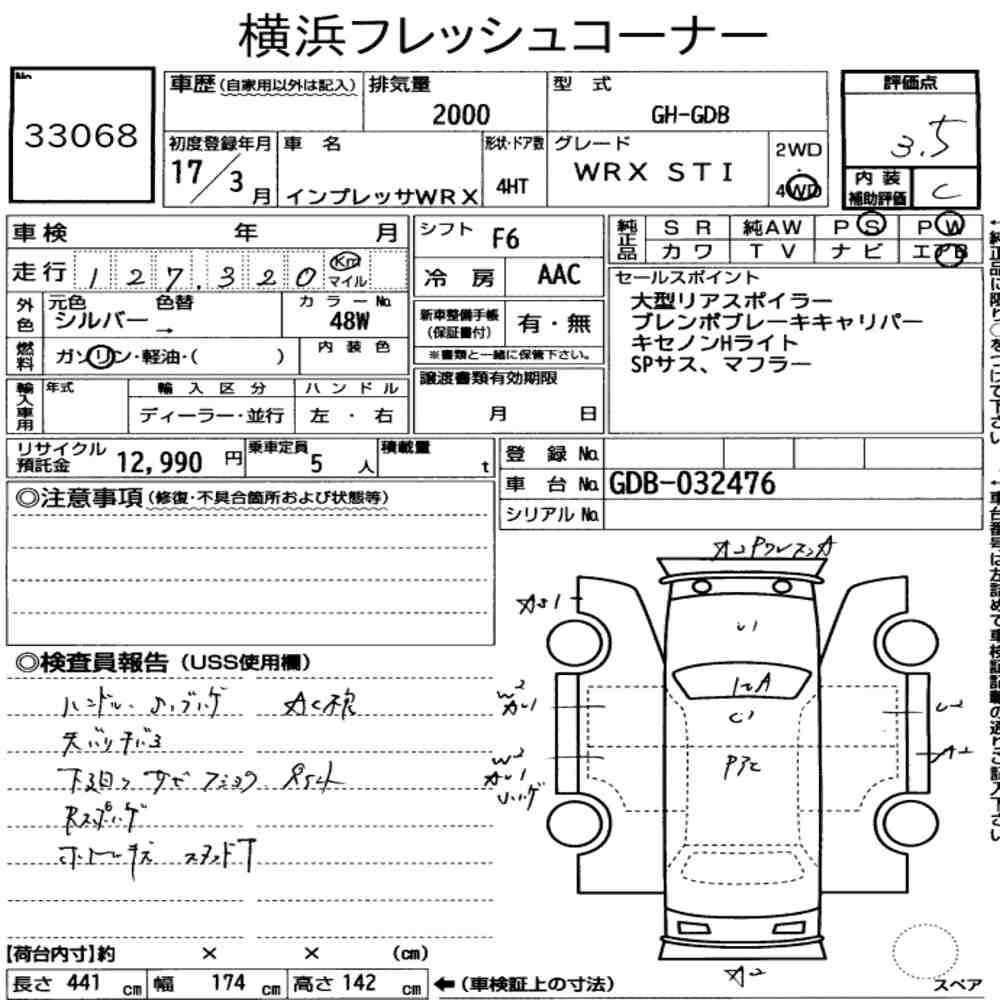 横浜フレッシュコーナー
No. 33068
車歴(自家用以外は記入)
排気量 2000
型式 GH-GDB
評価点 3.5
内装補助評価 C
初度登録年月 17/3月
車名 インプレッサWRX
形状・ドア数 4HT
グレード WRX STI
2WD
4WD
車検 年 月
走行 127,320 Km マイル
シフト F6
冷房 AAC
純正品 SR 純AW PS PW
カワ TV ナビ エアB
外色 元色 シルバー 色替 →
カラーNo. 48W
燃料 ガソリン・軽油・( )
内装色
新車整備手帳(保証書付) 有・無
※書類と一緒に保管下さい。
セールスポイント
大型リアスポイラー
ブレンボブレーキキャリパー
キセノンHライト
SPサス、マフラー
輸入車用 年式 輸入区分 ハンドル
ディーラー・並行 左・右
譲渡書類有効期限
月 日
リサイクル預託金 12,990円
乗車定員 5人
積載量 t
登録No.
車台No. GDB-032476
シリアルNo.
◎注意事項(修復・不具合箇所および状態等)
◎検査員報告(USS使用欄)
A2
A2
【荷台内寸】約 × × (cm)
長さ 441cm 幅 174cm 高さ 142cm ←(車検証上の寸法)
スペア
←純正品に限り○をつけて下さい
←車台番号は左詰めで車検証記載の通りご記入下さい